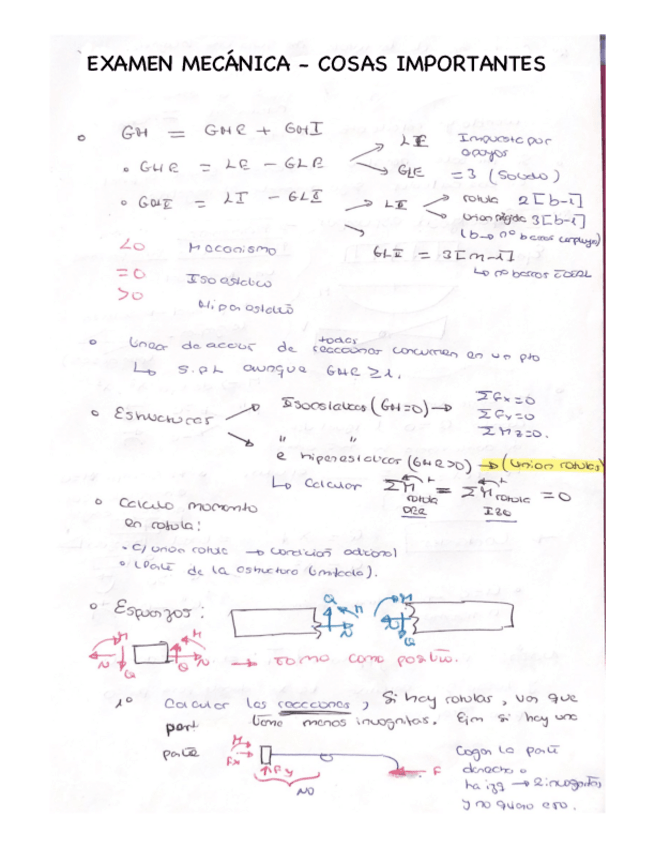 EXAMEN MECÁNICA - COSAS IMPORTANTES
GH = GHE + GHI
GHE = LE - GLE
LE Impuesta por apoyos
GLE = 3 (Solido)
GHI = LI - GLI
LI rotula 2[b-1]
union rígida 3[b-1]
(b → nº barras confluyen)
GLI = 3[n-1]
↳ nº barras TOTAL
<0 Mecanismo
=0 Isoestatico
>0 Hiperestatico
Linea de accion de todas reacciones concurren en un pto
↳ aunque GHE ≥ 1.
Estructuras
Isoestaticas (GH=0) →
ΣFx=0
ΣFy=0
ΣMz=0.
" "
e hiperestaticas (GHE>0) → (union rotulas)
↳ Calcular ΣM rotula DER = ΣM rotula IZQ = 0
Calculo momento
en rotula:
C/ union rotula → condicion adicional
(Parte de la estructura limitada).
Esfuerzos:
Q M N
M N Q
M N Q M N Q
→ tomo como positivo.
1º Calcular las reacciones, Si hay rotulas, ver que
part tiene menos incognitas. Ejm si hay una
parte
M
Fx
Fy
F
NO
Coger la parte
derecha
ha izq → 2 incognitas
y no quiero eso.